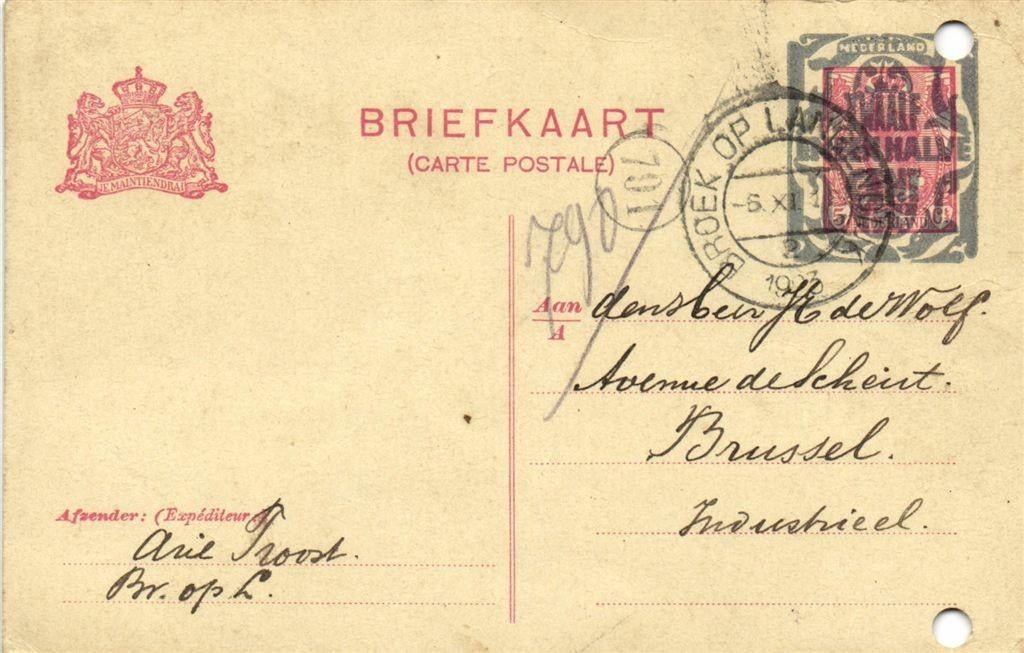 NEDERLAND
BRIEFKAART
(CARTE POSTALE)
JE MAINTIENDRAI
701
790
BROEK OP LANGENDIJK
-6.XI.
2
1923
NEDERLAND
Aan
A
den Heer H de Wolf.
Avenue de Scheut.
Brussel.
Industrieel.
Afzender: (Expéditeur:)
Arie Troost.
Br. op L.